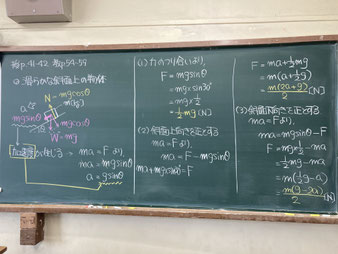 教p.41-42, 教p.54-59
◎ 滑らかな斜面上の物体
N = mgcosθ
m[kg]
a
mgsinθ
mgcosθ
W = mg
加速度が生じる → ma = F より、
ma = mgsinθ
a = gsinθ
(1) 力のつり合いより、
F = mgsinθ
= mg×sin30°
= mg×1/2
= 1/2mg [N]
(2) 斜面上向きを正とする
ma = Fより、
ma = F - mgsinθ
ma + mgsinθ = F
F = ma + 1/2mg
= m(a + 1/2g)
= m(2a+g)/2 [N]
(3) 斜面下向きを正とする。
ma = Fより、
ma = mgsinθ - F
F = mg×1/2 - ma
= 1/2mg - ma
= m(1/2g - a)
= m(g-2a)/2 [N]